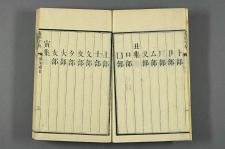 卜部
卩部
厂部
厶部
又部
丑集
口部
囗部
土部
士部
夂部
夊部
夕部
大部
女部
寅集